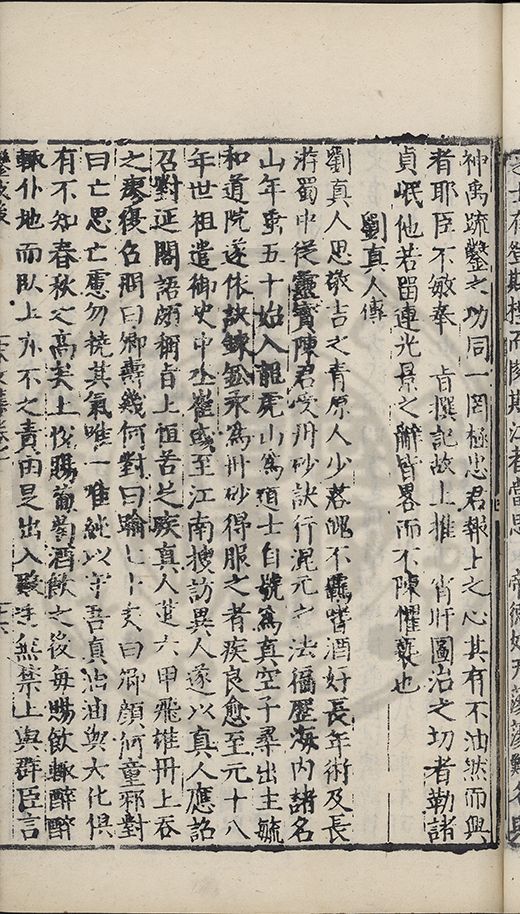 神禹疏鑿之功同一罔極忠君報上之心其有不油然而興
者耶臣不敏奉 旨撰記故上推 宵旰圖治之切者勒諸
貞岷他若留連光景之辭皆畧而不陳懼褻也
劉真人傳
劉真人思敬吉之青原人少落魄不羈嗜酒好長年術及長
游蜀中從靈寶陳君受丹砂訣行混元之法徧歷海內諸名
山年垂五十始入龍虎山為道士自號為真空子尋出主毓
和道院遂依訣鍊鉛汞為丹砂得服之者疾良愈至元十八
年世祖遣御史中丞崔彧至江南搜訪異人遂以真人應詔
召對延閣語頗稱旨上恒苦足疾真人進六甲飛雄丹上吞
之廖復召問曰卿壽幾何對曰踰七十矣曰卿顏何童邪對
曰亡思亡慮勿撓其氣唯一唯純以守吾真治治與大化俱
有不知春秋之高矣上悅賜葡萄酒飲之後每賜飲輒醉醉
輒仆地而臥上亦不之責由是出入殿庭無禁上與群臣言